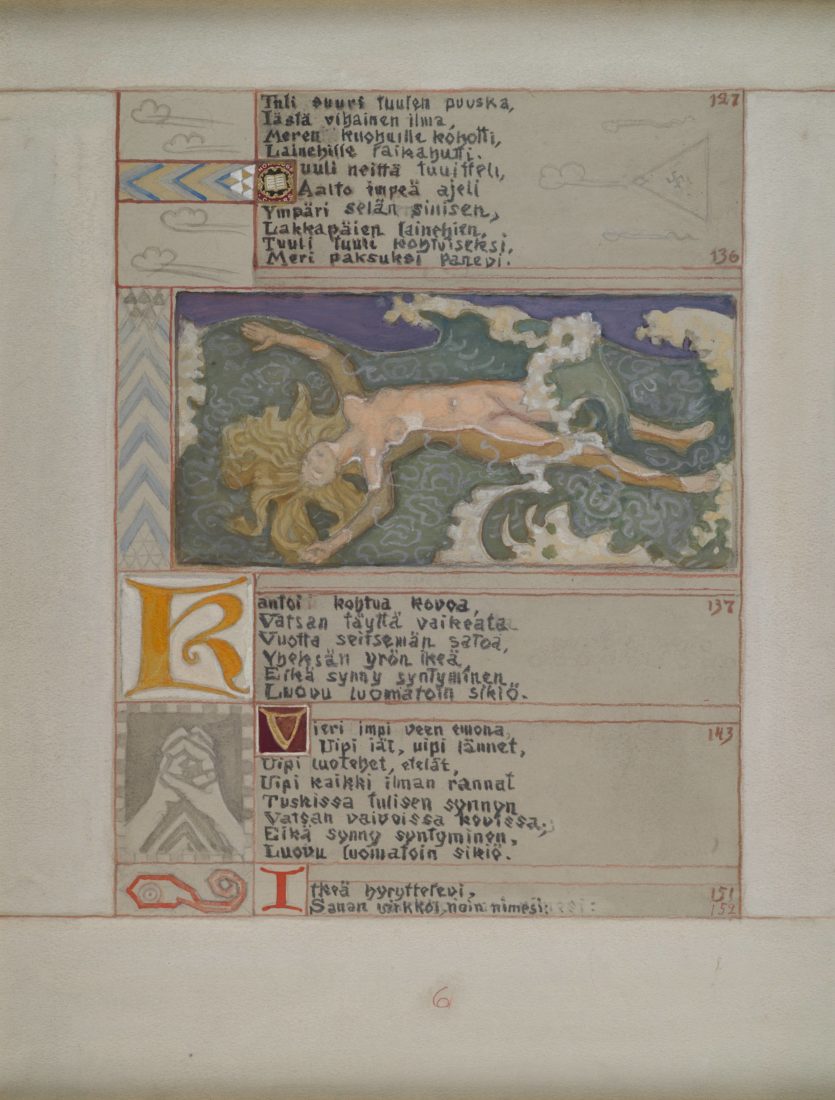 Tuli suuri tuulen puuska, 127
Iästä vihainen ilma,
Meren kuohuille kohotti,
Lainehille laikahutti.
uuli neittä tuuitteli,
Aalto impeä ajeli
Ympäri selän sinisen,
Lakkapäien lainehien.
Tuuli tuuli kohtuiseksi,
Meri paksuksi panevi. 136
Kantoi kohtua kovoa, 137
Vatsan täyttä vaikeata
Vuotta seitsemän satoa,
Yheksän yrön ikeä,
Eikä synny syntyminen
Luovu luomatoin sikiö.
Vieri impi veen emona, 143
Uipi iät, uipi lännet,
Uipi luotehet, etelät,
Uipi kaikki ilman rannat
Tuskissa tulisen synnyn
Vatsan vaivoissa kovissa;
Eikä synny syntyminen,
Luovu luomatoin sikiö.
Itkeä hyryttelevi, 151
Sanan virkkoi, noin nimesi: 152
6